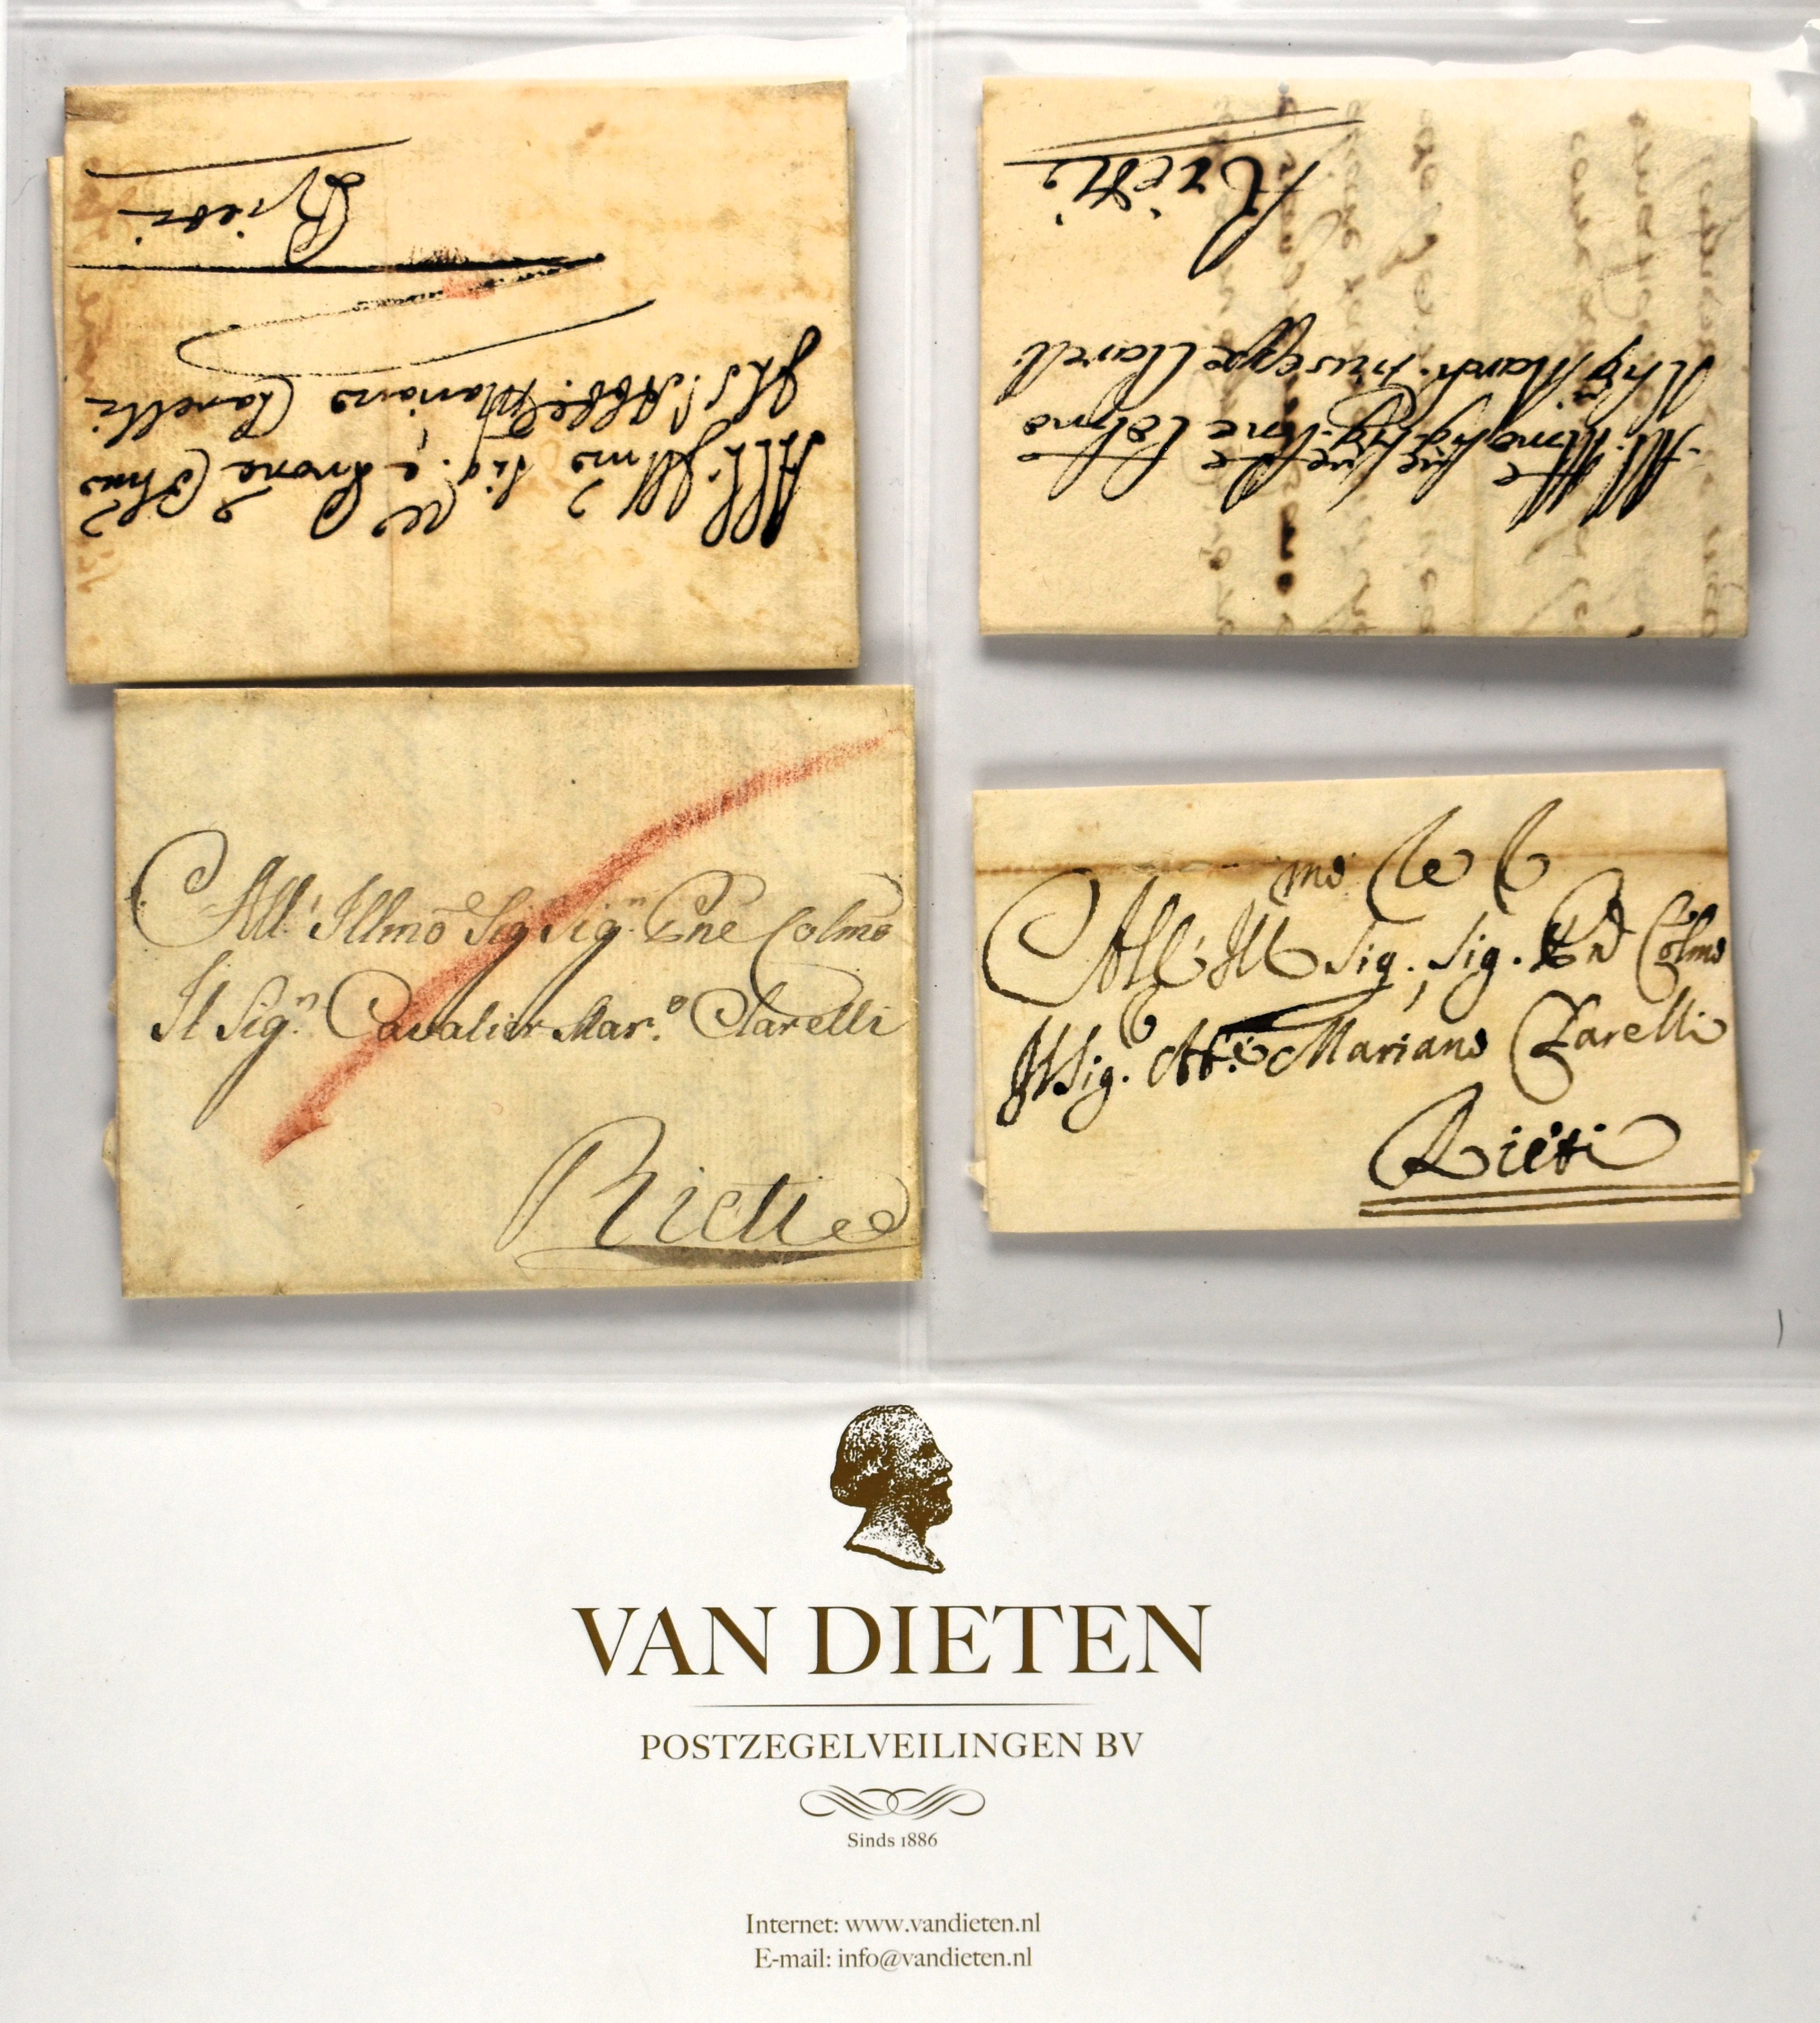 All: Illmo Sig. e Prone Colmo
Il S. Abbe Mariano Clarelli
Rieti
All: Illmo Sig Sig Pne Colmo
Il Sig March. Giuseppe Clarelli
Rieti
All' Illmo Sig Sig.n Pne Colmo
Il Sig.n Cavalier Mar.o Clarelli
Rieti
All' Ill mo Sig. Sig. Pne Colmo
Il Sig. Ab.e Mariano Clarelli
Rieti
VAN DIETEN
POSTZEGELVEILINGEN BV
Sinds 1886
Internet: www.vandieten.nl
E-mail: info@vandieten.nl